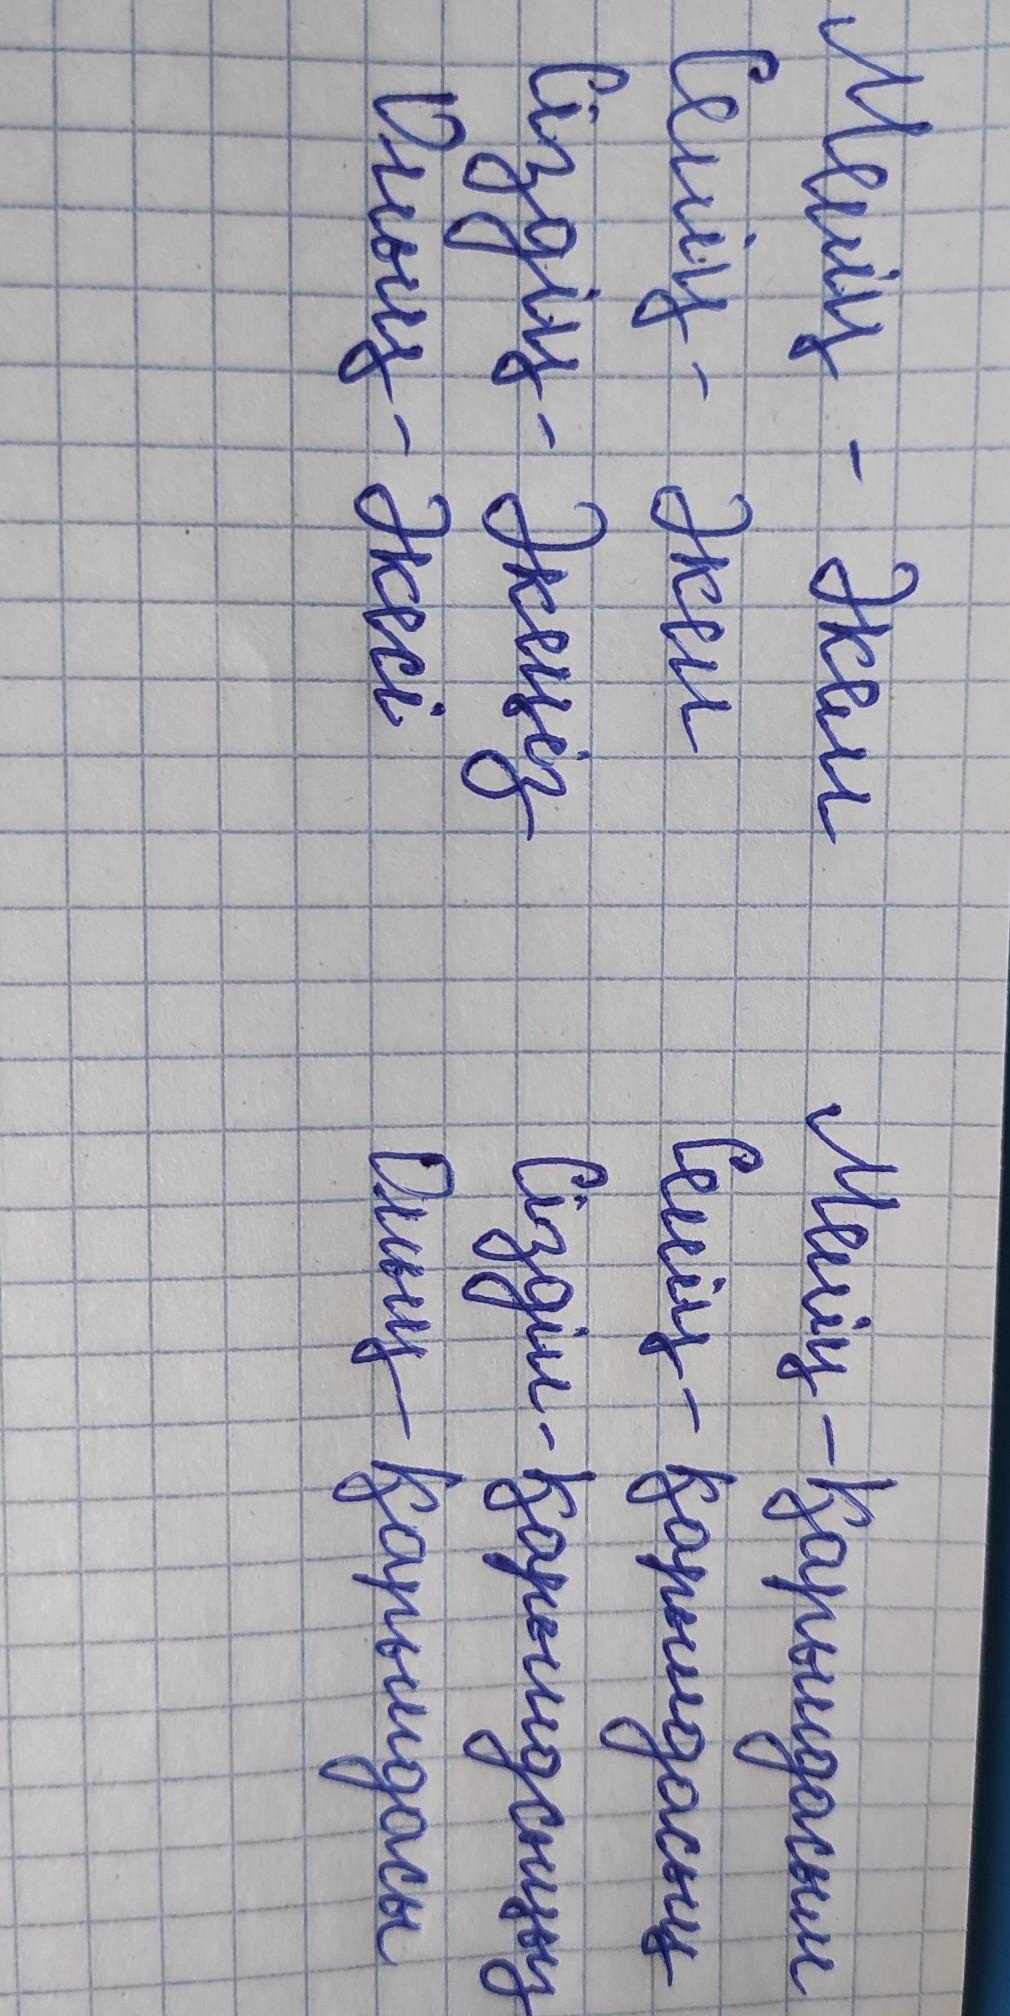 Менің - Әкем
Сенің - Әкен
Сіздің - Әкеңіз
Оның - Әкесі
Менің - Қарындасым
Сенің - Қарындасың
Сіздін - Қарындсыңыз
Оның - Қарындасы